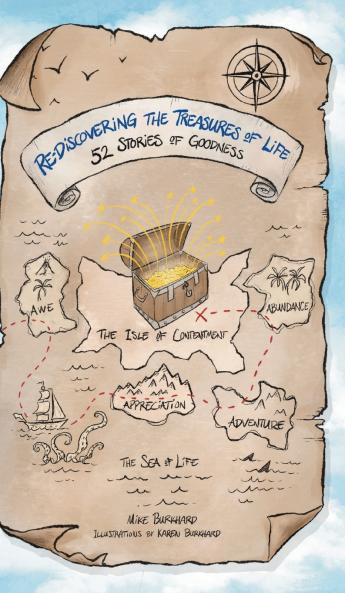 RE-DISCOVERING THE TREASURES OF LIFE
52 STORIES OF GOODNESS
AWE
ABUNDANCE
THE ISLE OF CONTENTMENT
APPRECIATION
ADVENTURE
THE SEA OF LIFE
MIKE BURKHARD
ILLUSTRATIONS BY KAREN BURKHARD